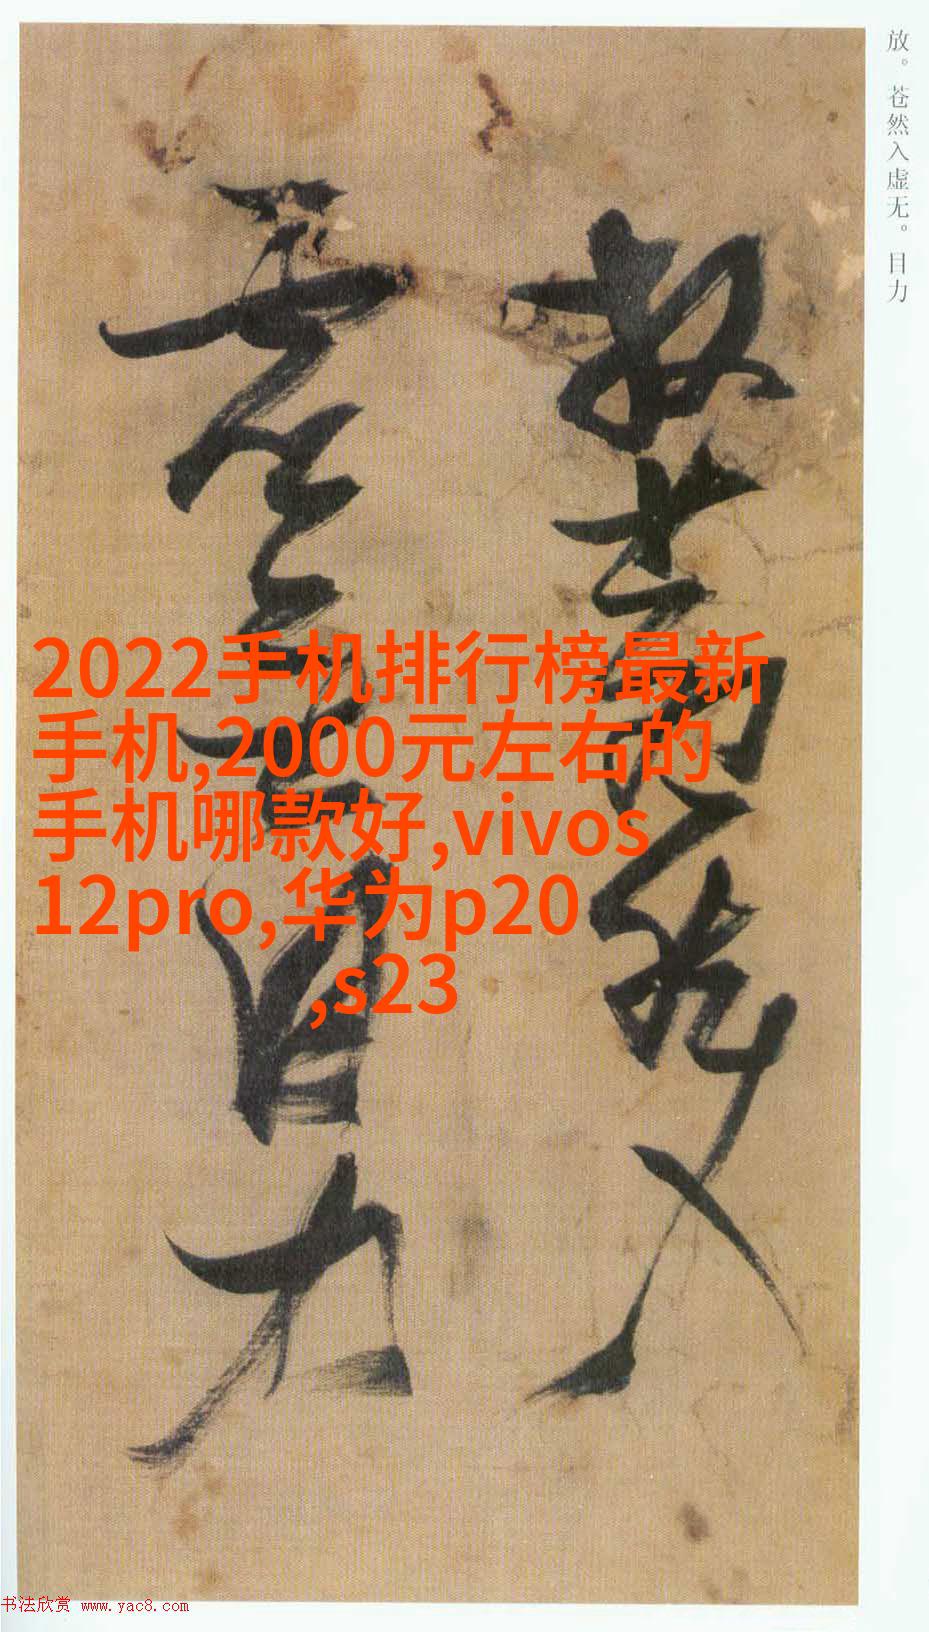 放。苍然入虚无。目力
放苍然入
虚无目力
2022手机排行榜最新
手机,2000元左右的
手机哪款好,vivos
12pro,华为p20
,s23
书法欣赏 www.yac8.com